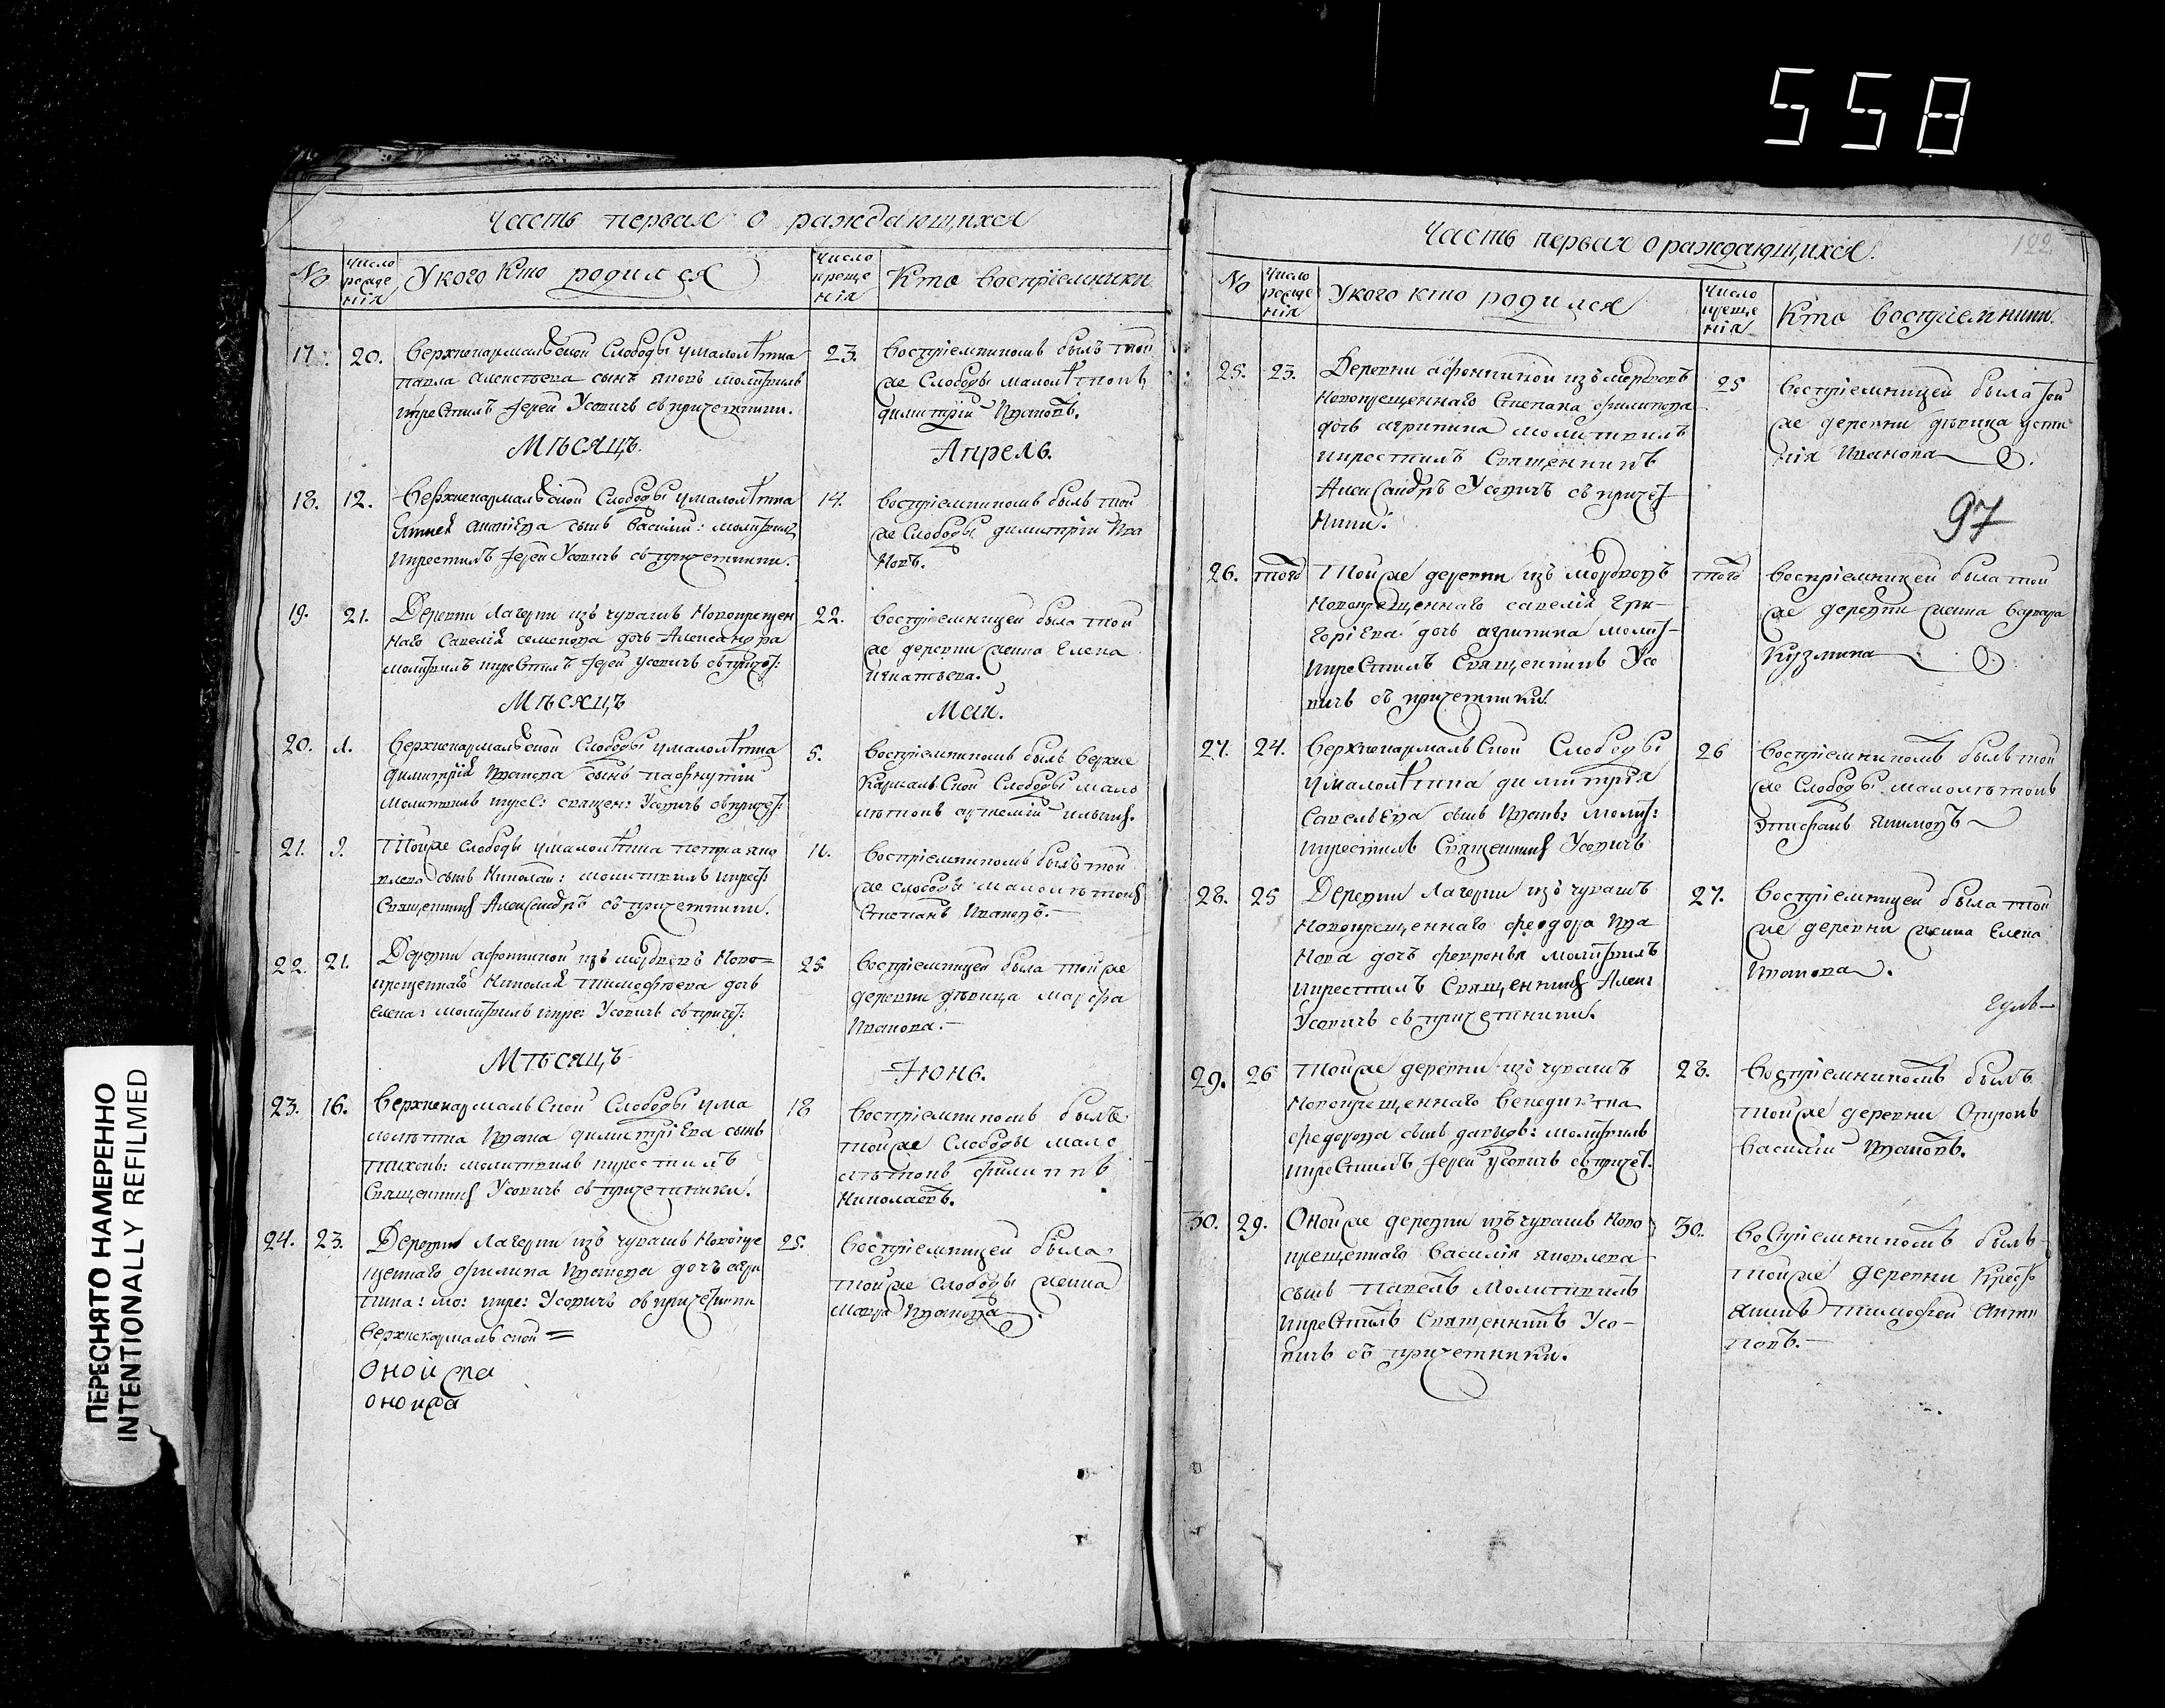 558
Часть первая о раждающихся
№
Число рожде нія
У кого кто родился
Число креще нія
Кто воспріемники
17.
20.
Верхнекармальской Слободы у малолѣтка
павла алексѣева сынъ яковъ молитвилъ
икрестилъ Іерей Усовичъ съ причетники.
23.
воспріемникомъ былъ той
же Слободы малолѣтокъ
димитрій Ивановъ.
Мѣсяцъ.
Апрель.
18.
12.
Верхнекармальской Слободы у малолѣтка
сынъ василий: молитвилъ
икрестилъ Іерей Усовичъ съ причетники.
14.
воспріемникомъ былъ той
же Слободы димитрій Ива
новъ.
19.
21.
Деревни Лагерки изъ чувашъ новокрещен
наго Савелія семенова дочь Александра
молитвилъ икрестилъ Іерей Усовичъ съ причет:
22.
воспріемницей была той
же деревни жонка Елена
игнатьева.
Мѣсяцъ
Маи.
20.
Верхнекармальской Слободы у малолѣтка
димитрія Иванова сынъ пафнутій
молитвилъ икрес: священ: Усовичъ съ причет:
5.
воспріемникомъ былъ верхне
кармальской Слободы мало
лѣтокъ артемій ильинъ.
21.
9.
Тойже слободы у малолѣтка петра яко
влева сынъ Николай: молитвилъ икрест:
Священникъ Александръ съ причетники.
11.
воспріемникомъ былъ той
же слободы малолѣтокъ
Степанъ Ивановъ.
22.
21.
Деревни афонкиной изъ мордвовъ ново=
крещеннаго Николая тимофѣева дочь
Елена: молитвилъ икре: Усовичъ съ причет:
25
воспріемницей была тойже
деревни дѣвица марфа
Иванова.
Мѣсяцъ
Іюнь.
23.
16.
Верхнекармальской Слободы у ма
лолѣтка Ивана димитріева сынъ
тихонъ: молитвилъ икрестилъ
Священникъ Усовичъ съ причетники.
18
воспріемникомъ былъ
тойже Слободы мало
лѣтокъ филиппъ
Николаевъ.
24.
23.
Деревни Лагерки изъ чувашъ новокре
щеннаго филипа Иванова дочь агри
пина: мо: икре: Усовичъ съ причетники
верхнекармальской =
оной жа
оной жа
25.
воспріемницей была
тойже слободы жонка
Мавра Иванова.
Часть первая о раждающихся.
122
№
Число рожде нія
У кого кто родился
Число креще нія
Кто воспріемники.
25.
23.
Деревни афонкиной изъ мордвовъ
новокрещеннаго Степана филипова
дочь агрипина молитвилъ
икрестилъ Священникъ
Александръ Усовичъ съ причет
ники.
25
воспріемницей была той
же деревни дѣвица усти
нія Иванова.
97
26.
того
Тойже деревни изъ мордвовъ
новокрещеннаго савелія Гри-
горіева дочь агрипина молит-
икрестилъ Священникъ Усо
вичъ съ причетники.
того
воспріемницей была той
же деревни жонка варвара
Кузмина
27.
24.
Верхнекармальской Слободы
у малолѣтка димитрія
Савельева сынъ Иванъ: молит:
икрестилъ Священникъ Усовичъ
26
воспріемникомъ былъ той
же Слободы малолѣтокъ
Епифанъ Якимовъ
28.
25
Деревни Лагерки изъ чувашъ
новокрещеннаго феодора Ива
нова дочь февронья молитвилъ
икрестилъ Священникъ Алек:
Усовичъ съ причетники.
27.
воспріемницей была той
же деревни жонка Елена
Иванова.
29.
26
Тойже деревни изъ чувашъ
новокрещеннаго венедикта
федорова сынъ давыдъ: молитвилъ
икрестилъ Іерей Усовичъ съ причет.
28.
воспріемникомъ былъ
тойже деревни Отрокъ
василий Ивановъ.
30.
29.
Онойже деревни изъ чувашъ ново
крещеннаго василія яковлева
сынъ павелъ молитвилъ
икрестилъ Священникъ Усо-
вичъ съ причетники.
30.
воспріемникомъ былъ
тойже деревни Крест
янинъ тимофей Анти
повъ.
ПЕРЕСНЯТО НАМЕРЕННО
INTENTIONALLY REFILMED